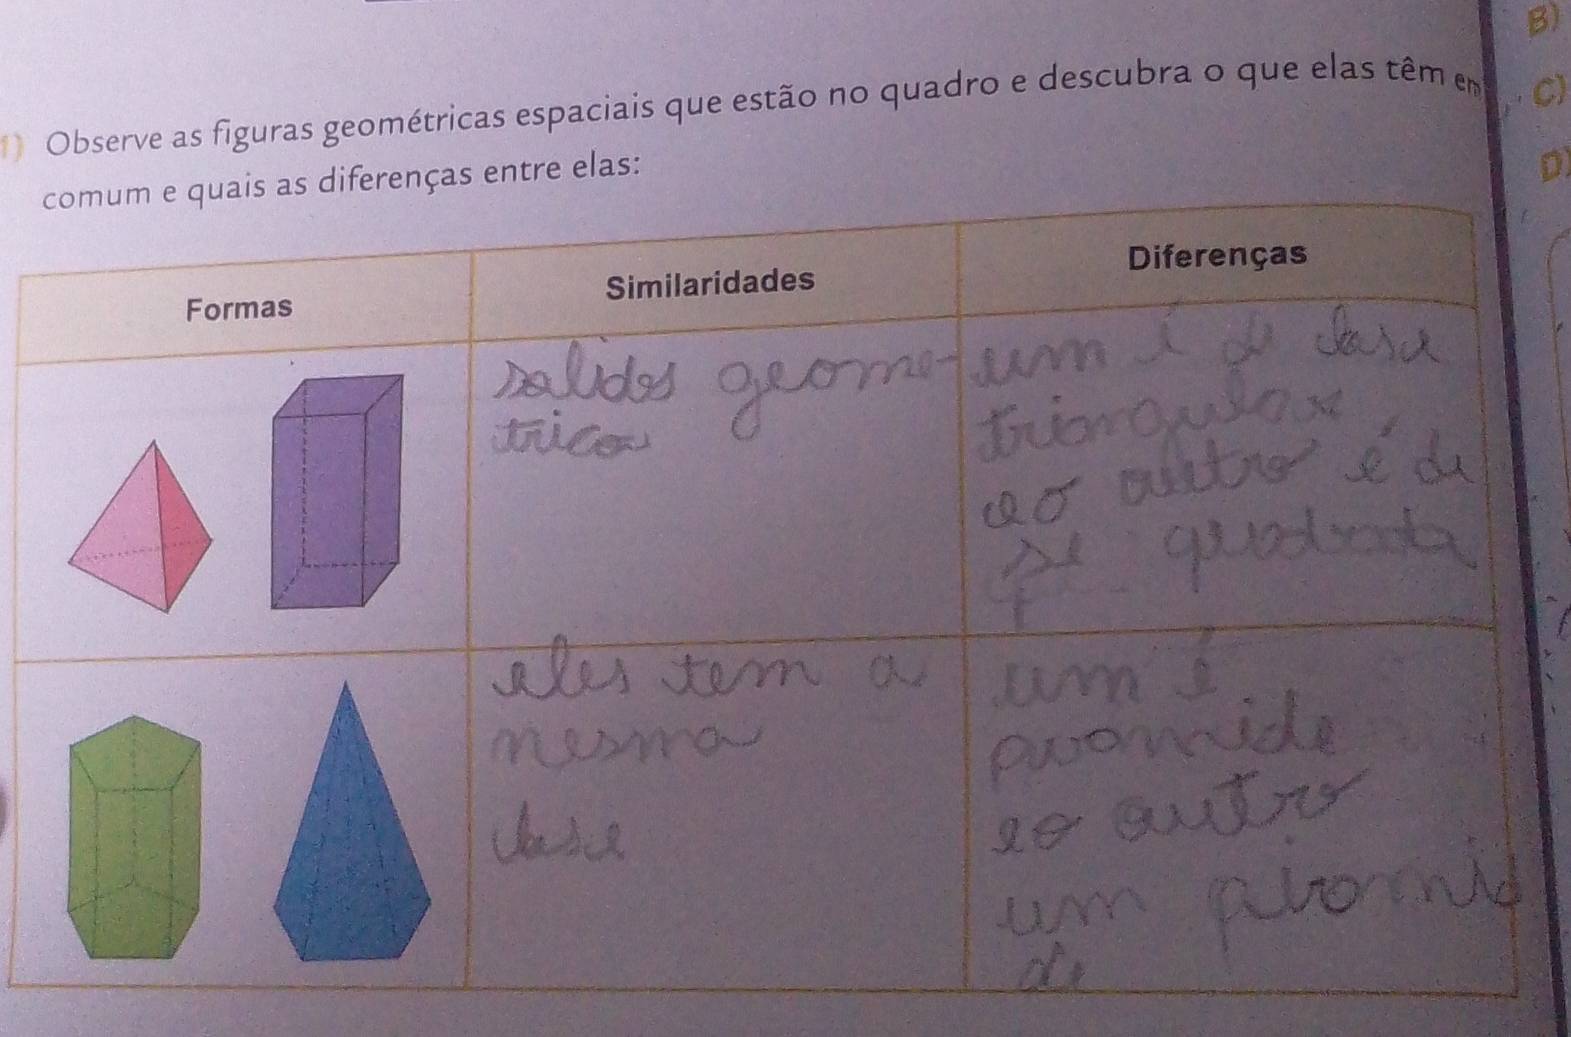 B)
C)
D)
1) Observe as figuras geométricas espaciais que estão no quadro e descubra o que elas têm em
comum e quais as diferenças entre elas:
Formas
Similaridades
Diferenças
salidos geome-
tricos
um é de base
triangular
eo outro é de
quadrada
eles tem a
mesma
base
um é
eo outro
um
de